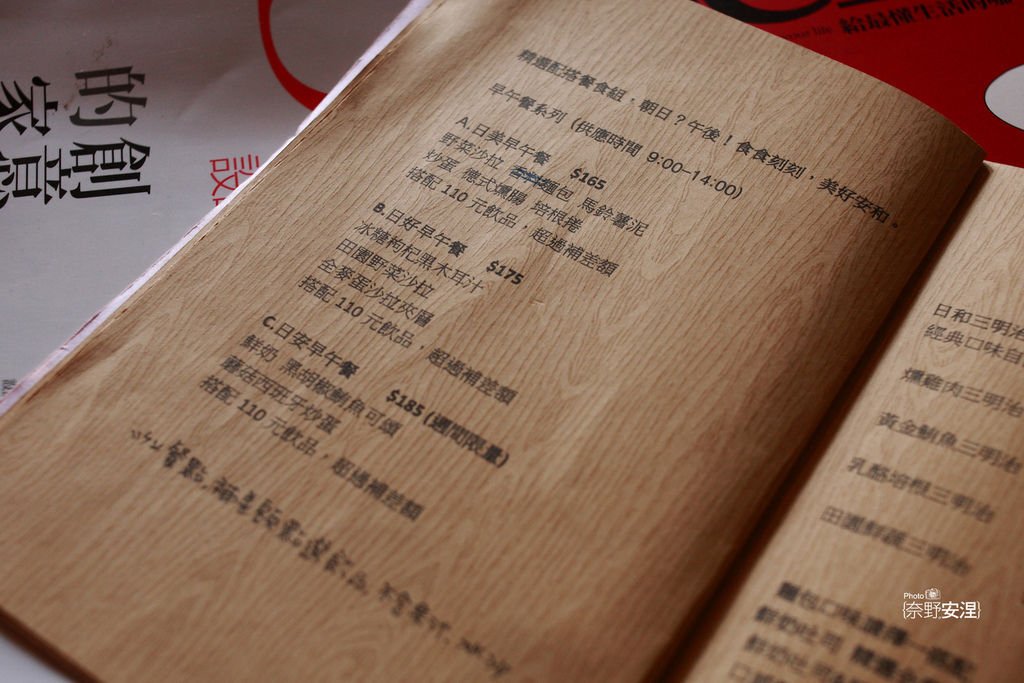 給最懂生活的
的創意
家
設
精選配搭餐食組，朝日？午後！食食刻刻，美好安和。
早午餐系列 (供應時間 9:00–14:00)
A.日美早午餐 $165
野菜沙拉 麵包 馬鈴薯泥
炒蛋 德式燻腸 培根捲
搭配 110 元飲品，超過補差額
B.日好早午餐 $175
冰糖枸杞黑木耳汁
田園野菜沙拉
全麥蛋沙拉夾層
搭配 110 元飲品，超過補差額
C.日安早午餐 $185 (週間限量)
鮮奶 黑胡椒鮪魚可頌
蘑菇西班牙炒蛋
搭配 110 元飲品，超過補差額
日和三明治
經典口味自
燻雞肉三明治
黃金鮪魚三明治
乳酪培根三明治
田園鮮蔬三明治
麵包口味選擇
鮮奶吐司
鮮奶吐司
Photo
{奈野安涅}